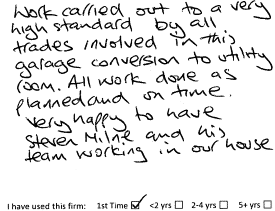 Work carried out to a very
high standard by all
trades involved in this
garage conversion to utility
room. All work done as
planned and on time.
Very happy to have
Steven Milne and his
team working in our house
I have used this firm: 1st Time ☑ <2 yrs ☐ 2-4 yrs ☐ 5+ yrs ☐